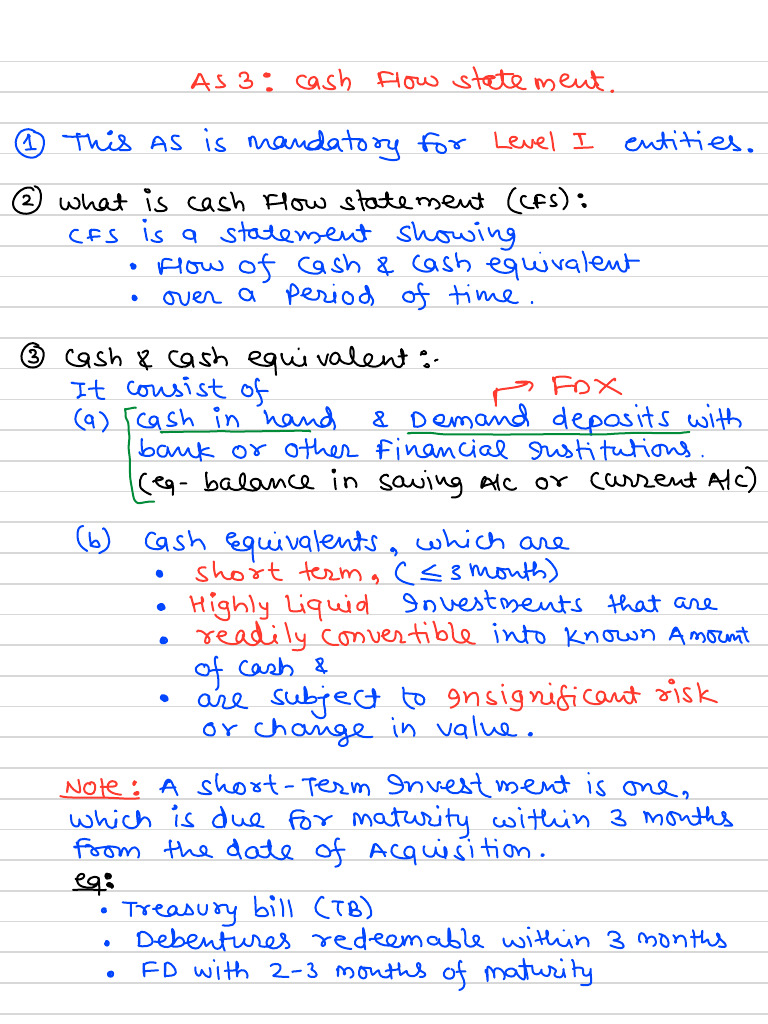 AS 3: Cash Flow statement.
① This AS is mandatory for Level I entities.
② What is cash Flow statement (CFS):
CFS is a statement showing
• Flow of cash & cash equivalent
• over a period of time.
③ Cash & cash equivalent:-
It consist of → FDX
(a) Cash in hand & Demand deposits with
bank or other Financial Institutions.
(eg- balance in saving A/c or Current A/c)
(b) Cash Equivalents, which are
• short term, (≤ 3 month)
• Highly Liquid Investments that are
• readily convertible into known Amount
of cash &
• are subject to Insignificant risk
or change in value.
Note: A short-Term Investment is one,
which is due for maturity within 3 months
from the date of Acquisition.
eg:
• Treasury bill (TB)
• Debentures redeemable within 3 months
• FD with 2-3 months of maturity